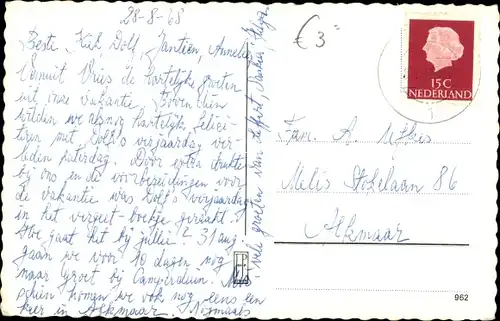 28-8-68
Beste Dolf, Jantien, Annelies
Vanuit Vries de hartelijke groeten
uit onze vakantie. Bovendien
wilden we alsnog hartelijk felici-
teren met Dolf's verjaardag ver-
leden zaterdag. Door extra drukte
bij ons en de voorbereidingen voor
de vakantie was Dolf's verjaardag
in het vergeet-boekje geraakt.
Hoe gaat het bij jullie? 31 aug
gaan we voor 10 dagen nog
naar Groet bij Camperduin. Mis-
schien komen we ook nog eens een
keer in Alkmaar. Nogmaals
vele groeten van
€ 3=
15 C
NEDERLAND
Fam. A.
Melis Stokelaan 86
Alkmaar
962